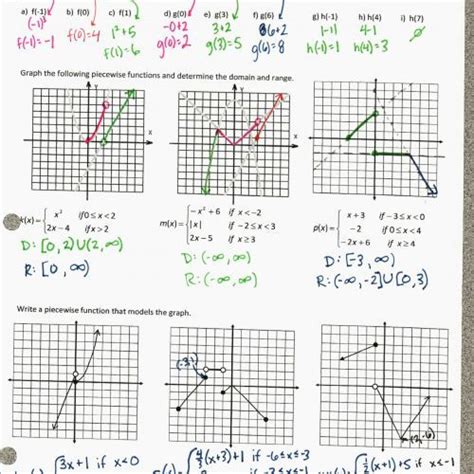 a) f(-1) b) f(0) c) f(1) d) g(0) e) g(3) f) g(6) g) h(-1) h) h(4) i) h(7)
(-1)³ 1²+5 -0+2 3+2 6+2 |-1| 4-1
f(-1)=-1 f(0)=4 f(1)=6 g(0)=2 g(3)=5 g(6)=8 h(-1)=1 h(4)=3 ∅
Graph the following piecewise functions and determine the domain and range.
y y
x x x
k(x)= { x² if 0≤x<2
2x−4 if x>2
m(x)= { −x²+6 if x<−2
|x| if −2≤x<3
2x−5 if x≥3
p(x)= { x+3 if −3≤x<0
−2 if 0≤x<4
−2x+6 if x≥4
D: [0,2)∪(2,∞) D: (-∞,∞) D: [-3,∞)
R: [0,∞) R: (-∞,∞) R: (-∞,-2]∪[0,3)
Write a piecewise function that models the graph.
(-3,1)
(2,-6)
3x+1 if x<0
(x+3)+1 if -6≤x≤-3
½(x+1)+5 if x≤-1